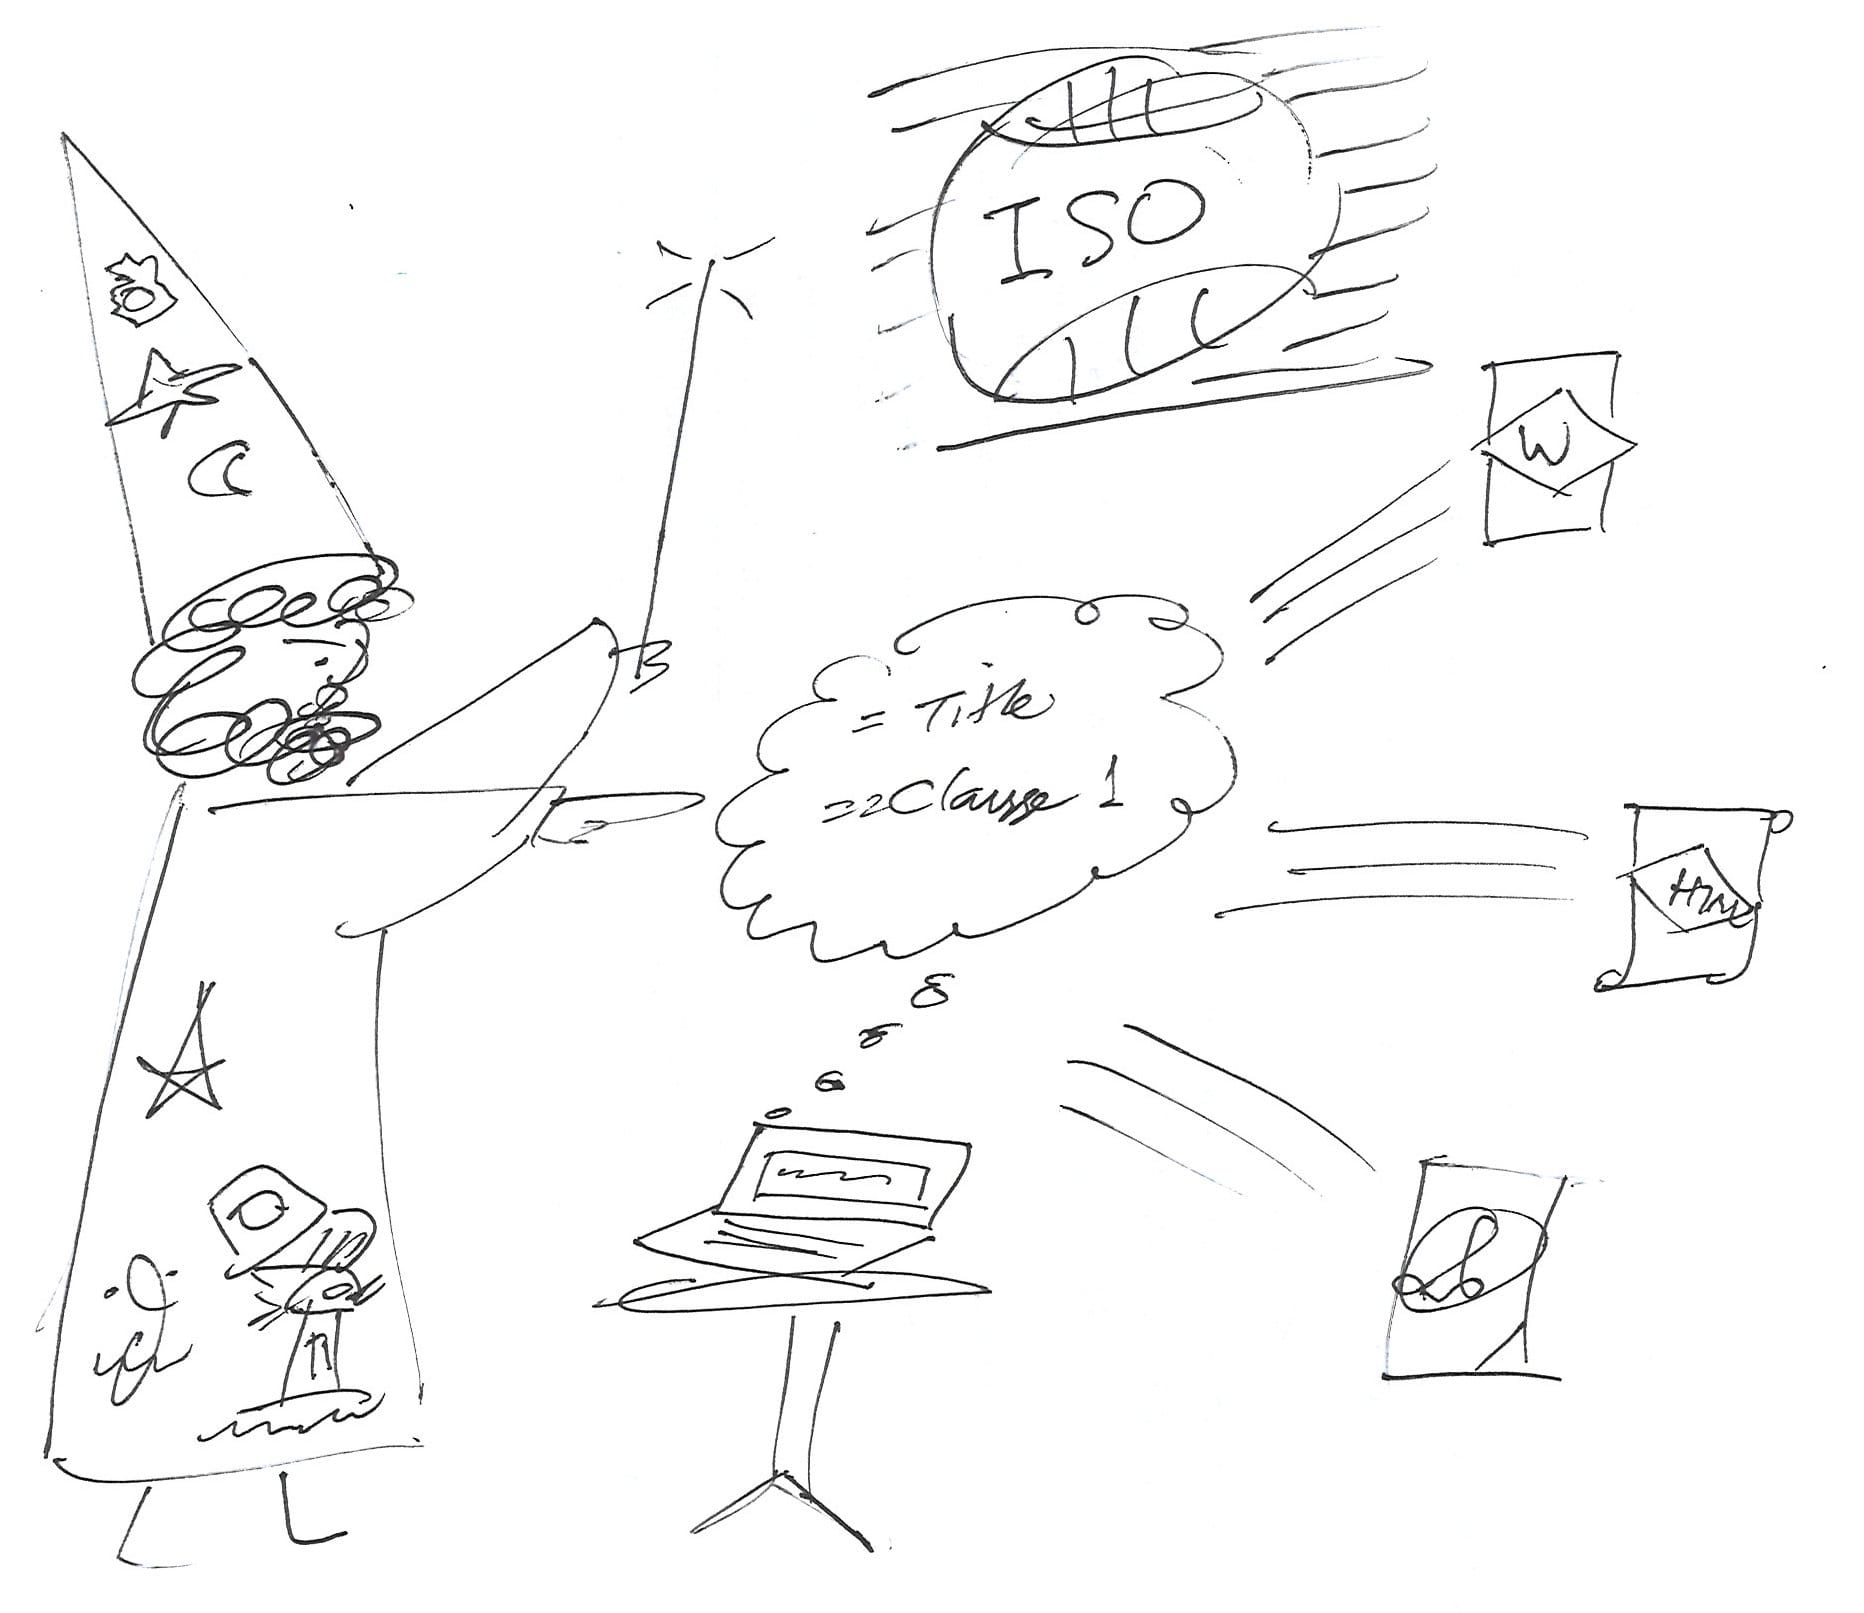 ISO
W
= Title
== Clause 1
HTML